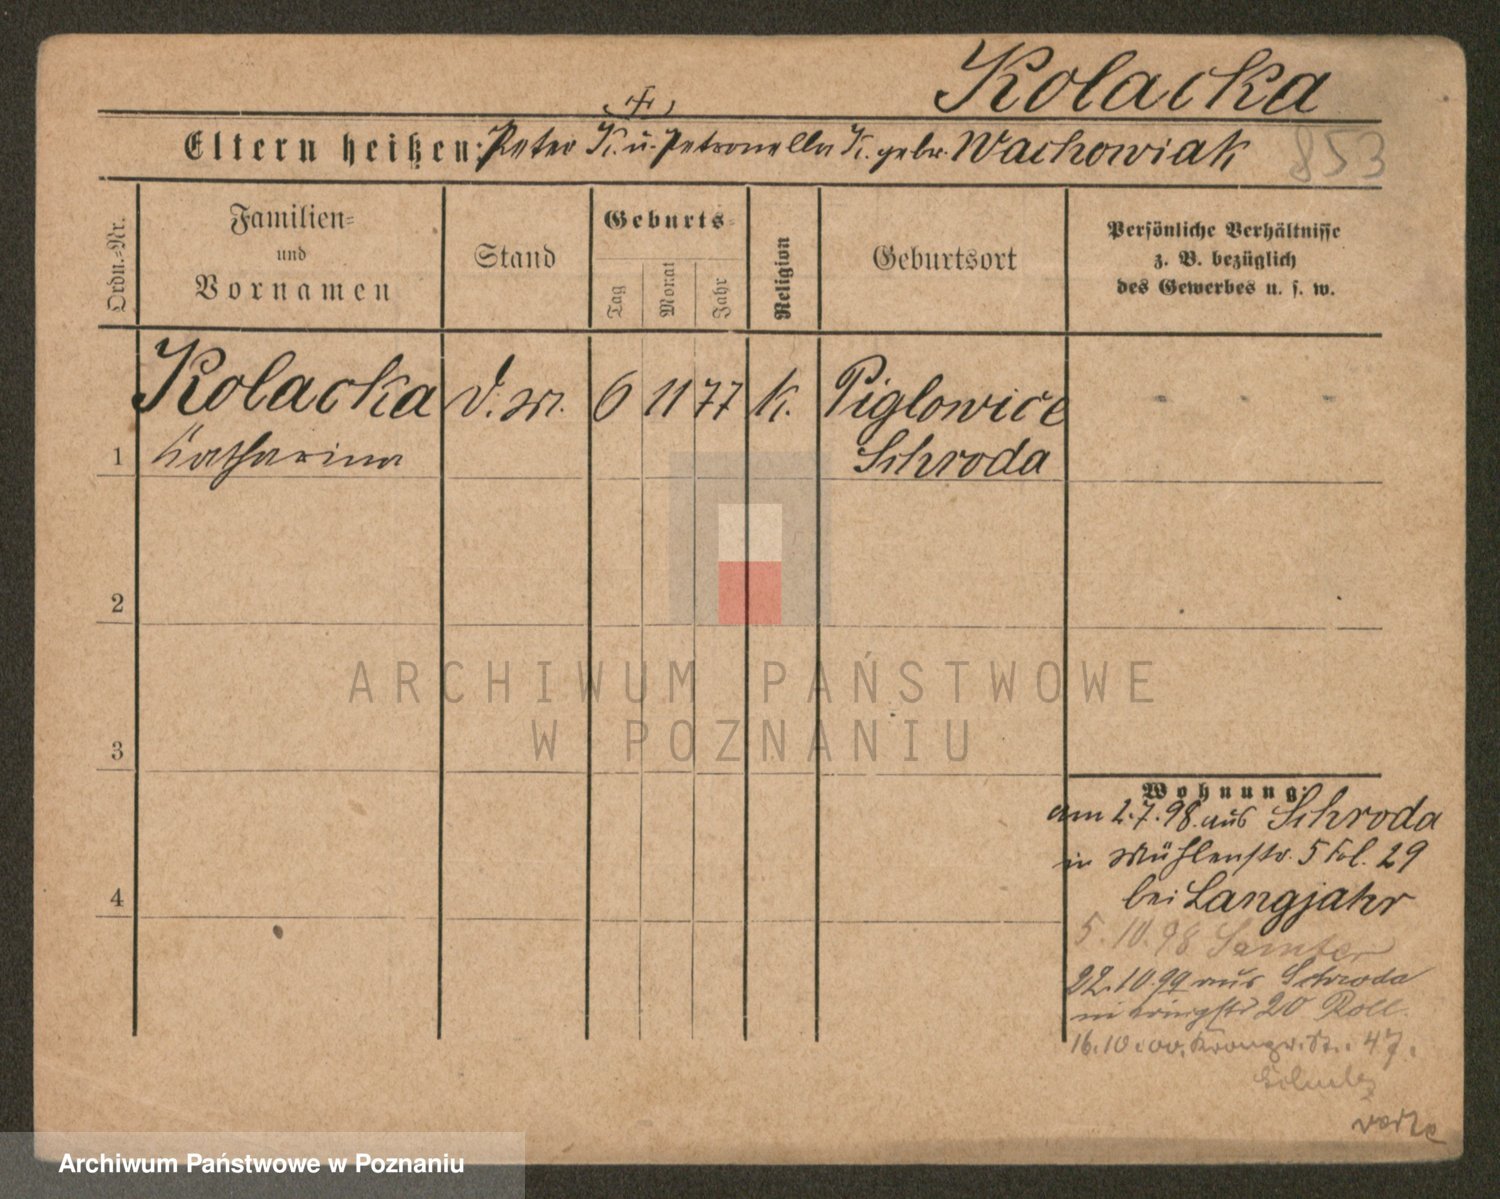 Kolacka
Eltern heißen: Peter K. u. Petronella K. gebr. Wachowiak
853
Ordn.-Nr.
Familien- und Vornamen
Stand
Geburts-
Tag
Monat
Jahr
Religion
Geburtsort
Persönliche Verhältnisse
z. B. bezüglich
des Gewerbes u. s. w.
Kolacka D. M. 6 11 77 K. Piglowice
1 Katharina Schroda
2
3
4
ARCHIWUM PAŃSTWOWE
W POZNANIU
Wohnung:
am 2.7.98. aus Schroda
in Mühlenstr. 5 Fol. 29
bei Langjahr
5.10.98 Samter
22.10.99 aus Schroda
in 20 Roll.
16.10.00. 47.
Archiwum Państwowe w Poznaniu